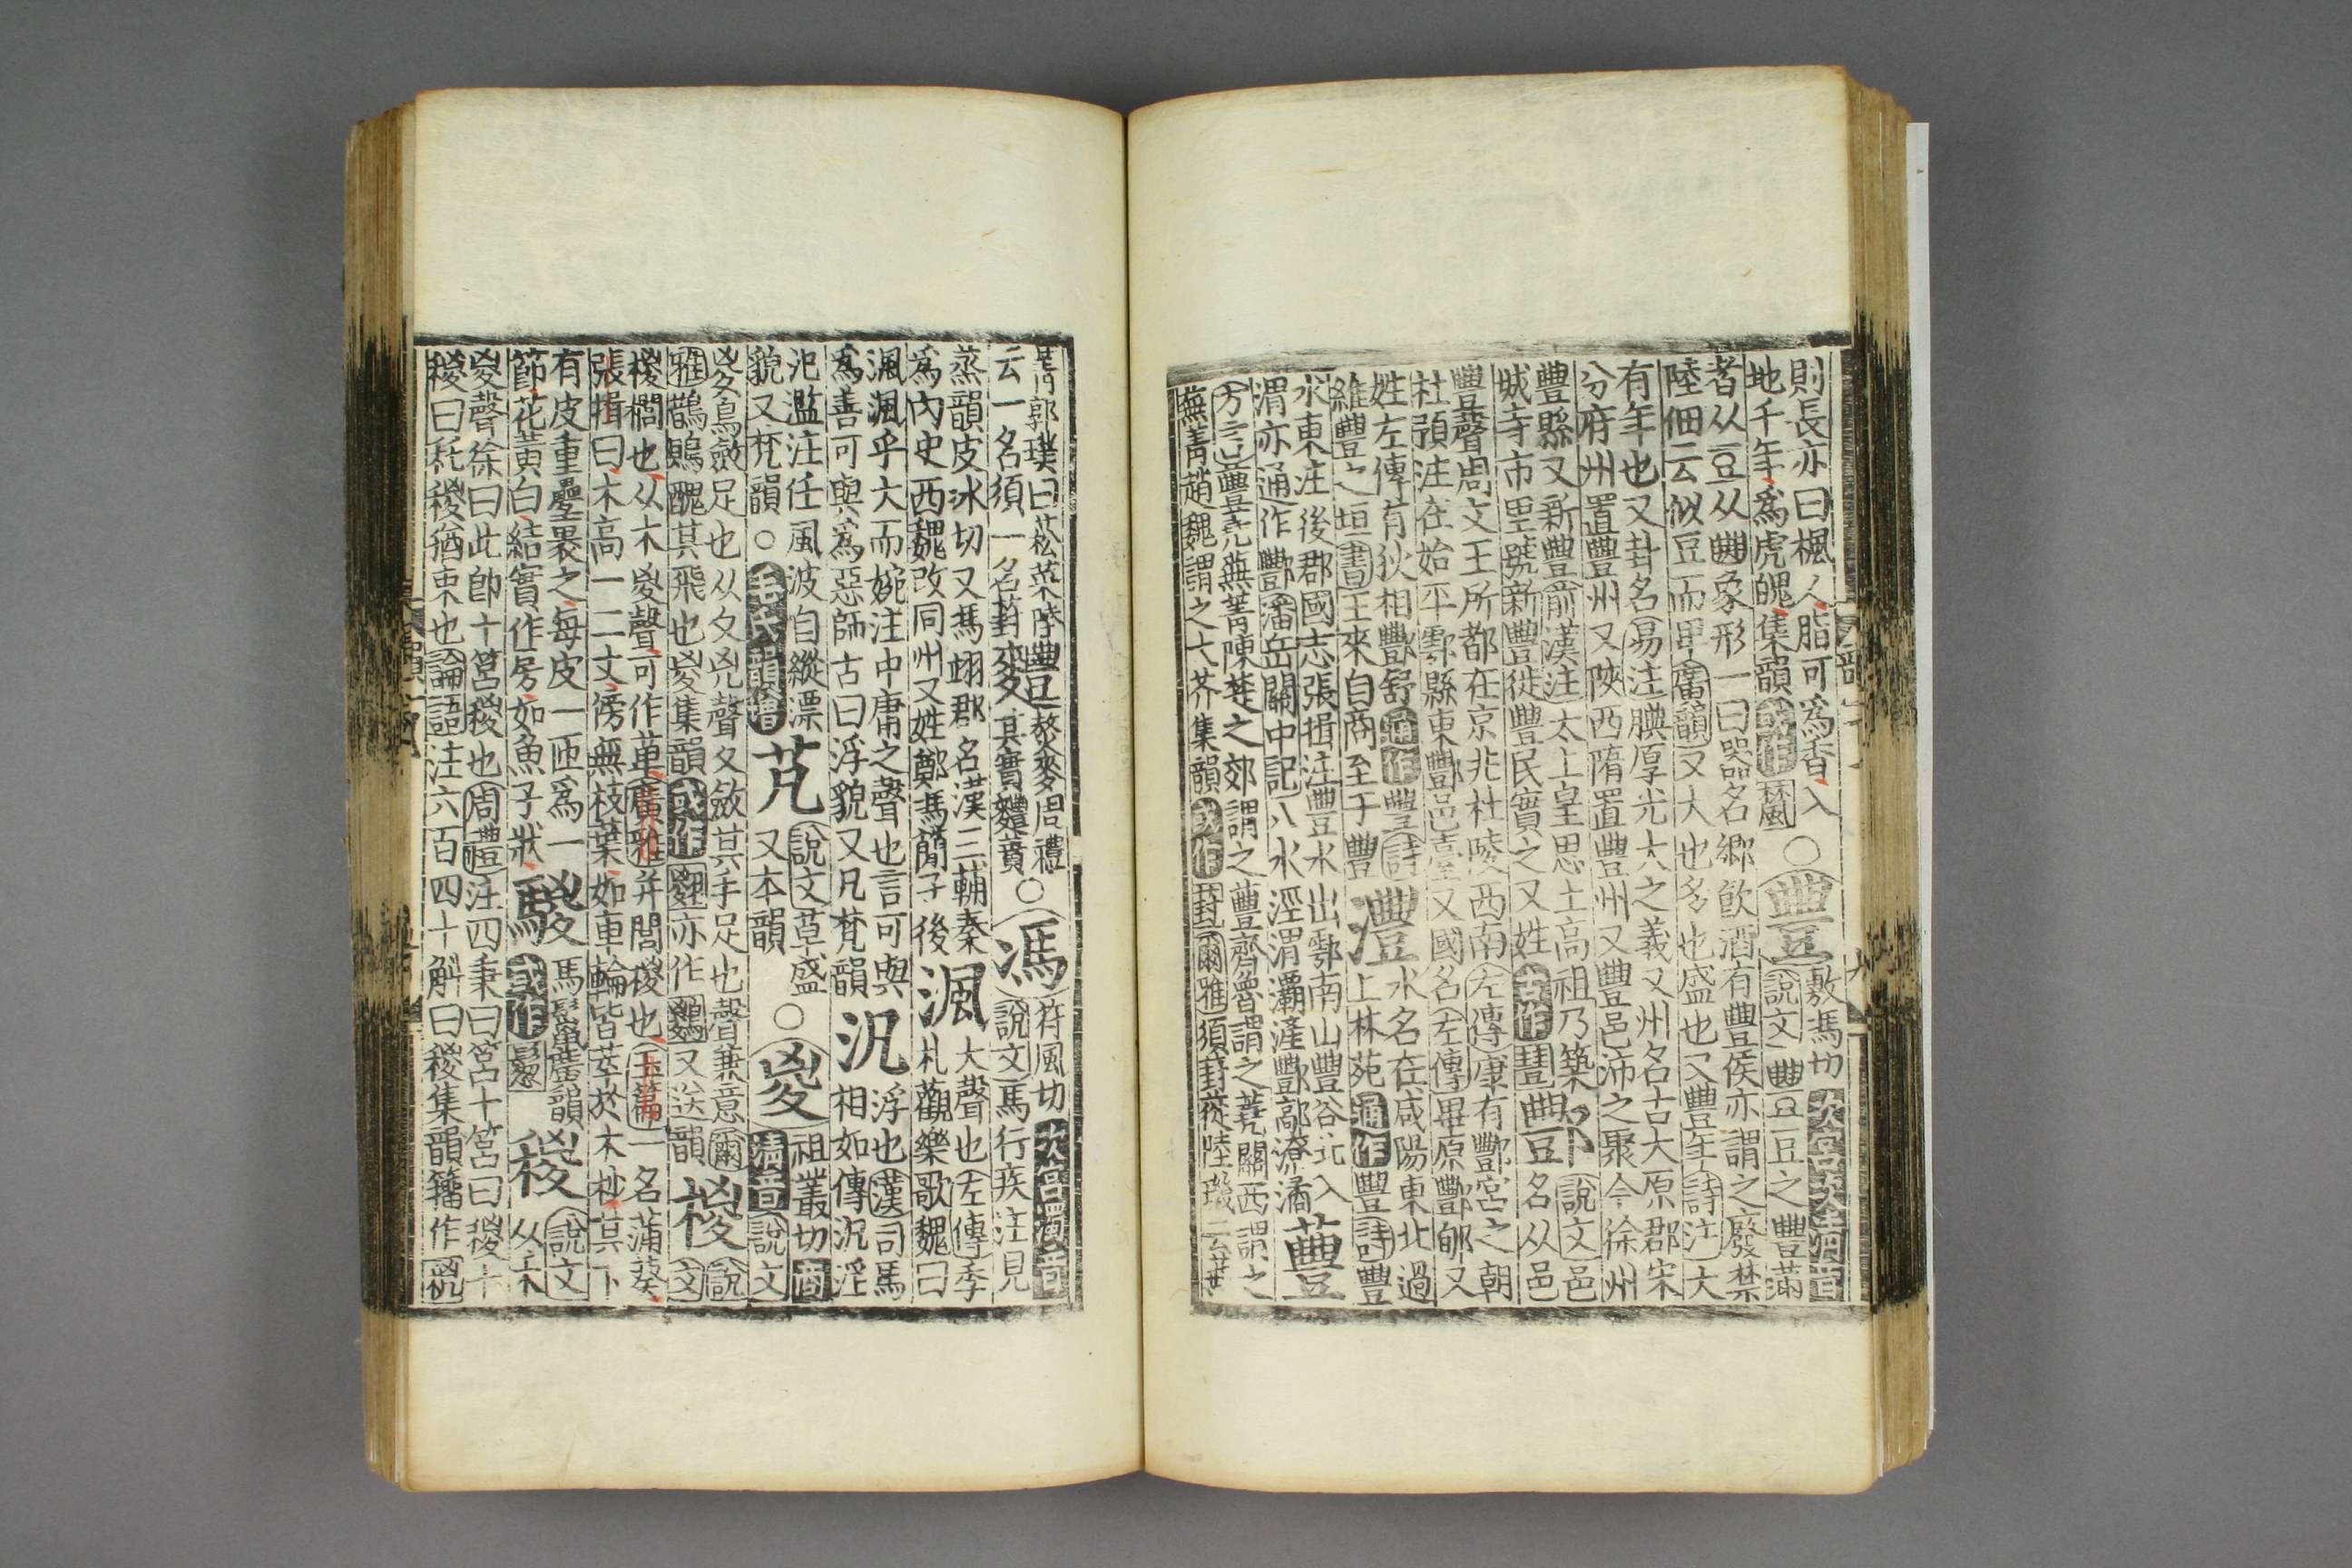 則長亦曰楓人脂可爲香入
地千年爲虎魄集韻或作檒○
豐
敷馮切次宮次清音
說文豐豆之豐滿
者从豆从象形一曰器名鄉飲酒有豐侯亦謂之廢禁
陸佃云似豆而卑廣韻又大也多也盛也又豐年詩注大
有年也又卦名易注腆厚光大之義又州名古大原郡宋
分府州置豐州又陝西隋置豐州又豐邑沛之聚今徐州
豐縣又新豐前漢注太上皇思土高祖乃築
城寺市里號新豐徙豐民實之又姓古作
酆
說文邑
名从邑
豐聲周文王所都在京兆杜陵西南左傳康有酆宮之朝
杜預注在始平鄠縣東酆邑臺又國名左傳畢原酆郇又
姓左傳有狄相酆舒通作豐詩
維豐之垣書王來自商至于豐
灃
水名在咸陽東北過
上林苑通作豐詩豐
水東注後郡國志張揖注豐水出鄠南山豐谷北入
渭亦通作酆潘岳關中記八水涇渭灞滻酆鄗潦潏
蘴
方言蘴蕘蕪菁陳楚之郊謂之蘴齊魯謂之蕘關西謂之
蕪菁趙魏謂之大芥集韻或作葑爾雅須葑蓯陸璣云蕪
菁郭璞曰菘菜陸
云一名須一名葑
麷
熬麥周禮
其實麷蕡○
馮
符風切次宮濁音
說文馬行疾注見
蒸韻皮冰切又馮翊郡名漢三輔秦
爲內史西魏改同州又姓鄭馮簡子後
渢
大聲也左傳季
札觀樂歌魏曰
渢渢乎大而婉注中庸之聲也言可與
爲善可與爲惡師古曰浮貌又凡梵韻
汎
浮也漢司馬
相如傳汎淫
氾濫注任風波自縱漂
貌又梵韻○毛氏韻增
芃
說文草盛
又本韻○
嵏
祖叢切商
清音說文
嵏鳥斂足也从夊兇聲夊斂其手足也聲兼意爾
雅鵲鵙醜其飛也嵏集韻或作翪亦作鬷又送韻
椶
說
文
椶櫚也从木嵏聲可作萆廣雅并閭椶也玉篇一名蒲葵
張揖曰木高一二丈傍無枝葉如車輪皆萃於木杪其下
有皮重疊裹之每皮一匝爲一
節花黃白結實作房如魚子狀
騣
馬鬣廣韻
或作鬉
稯
說文
从禾
嵏聲徐曰此即十筥稯也周禮注四秉曰筥十筥曰稯十
稯曰秅稯猶束也論語注六百四十斛曰稯集韻籀作